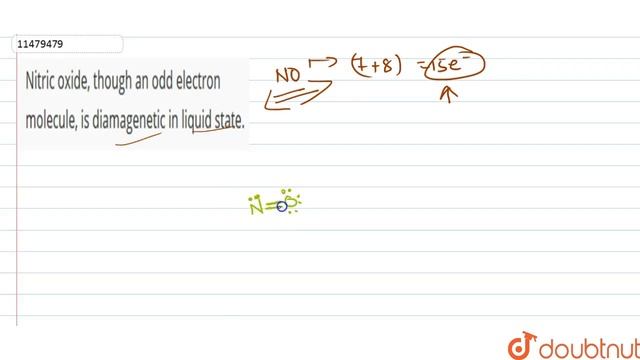 11479479
Nitric oxide, though an odd electron
molecule, is diamagenetic in liquid state.
NO → (7+8) = 15e⁻
N=O
doubtnut